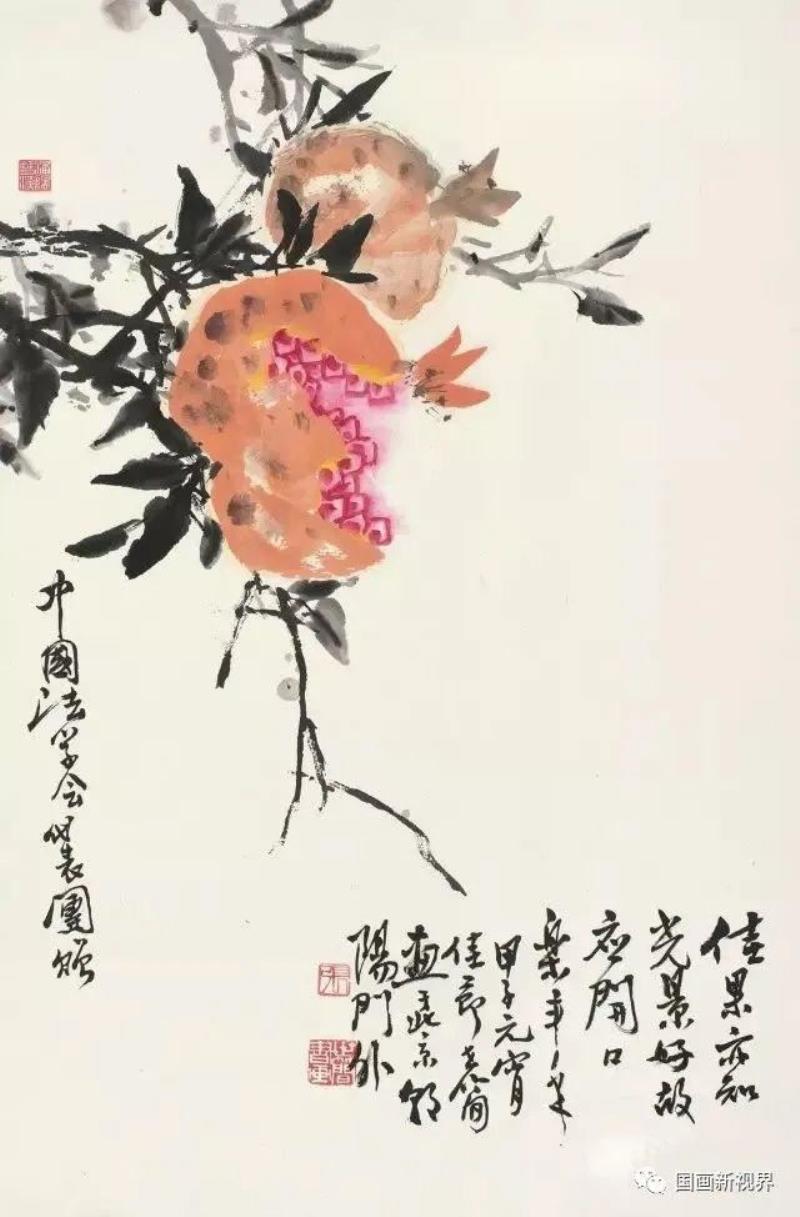 佳果亦知
光景好故
应開口
樂年年
甲子元宵
佳節老简
畫于北京朝
陽門外
中國法学会代表團
国画新视界